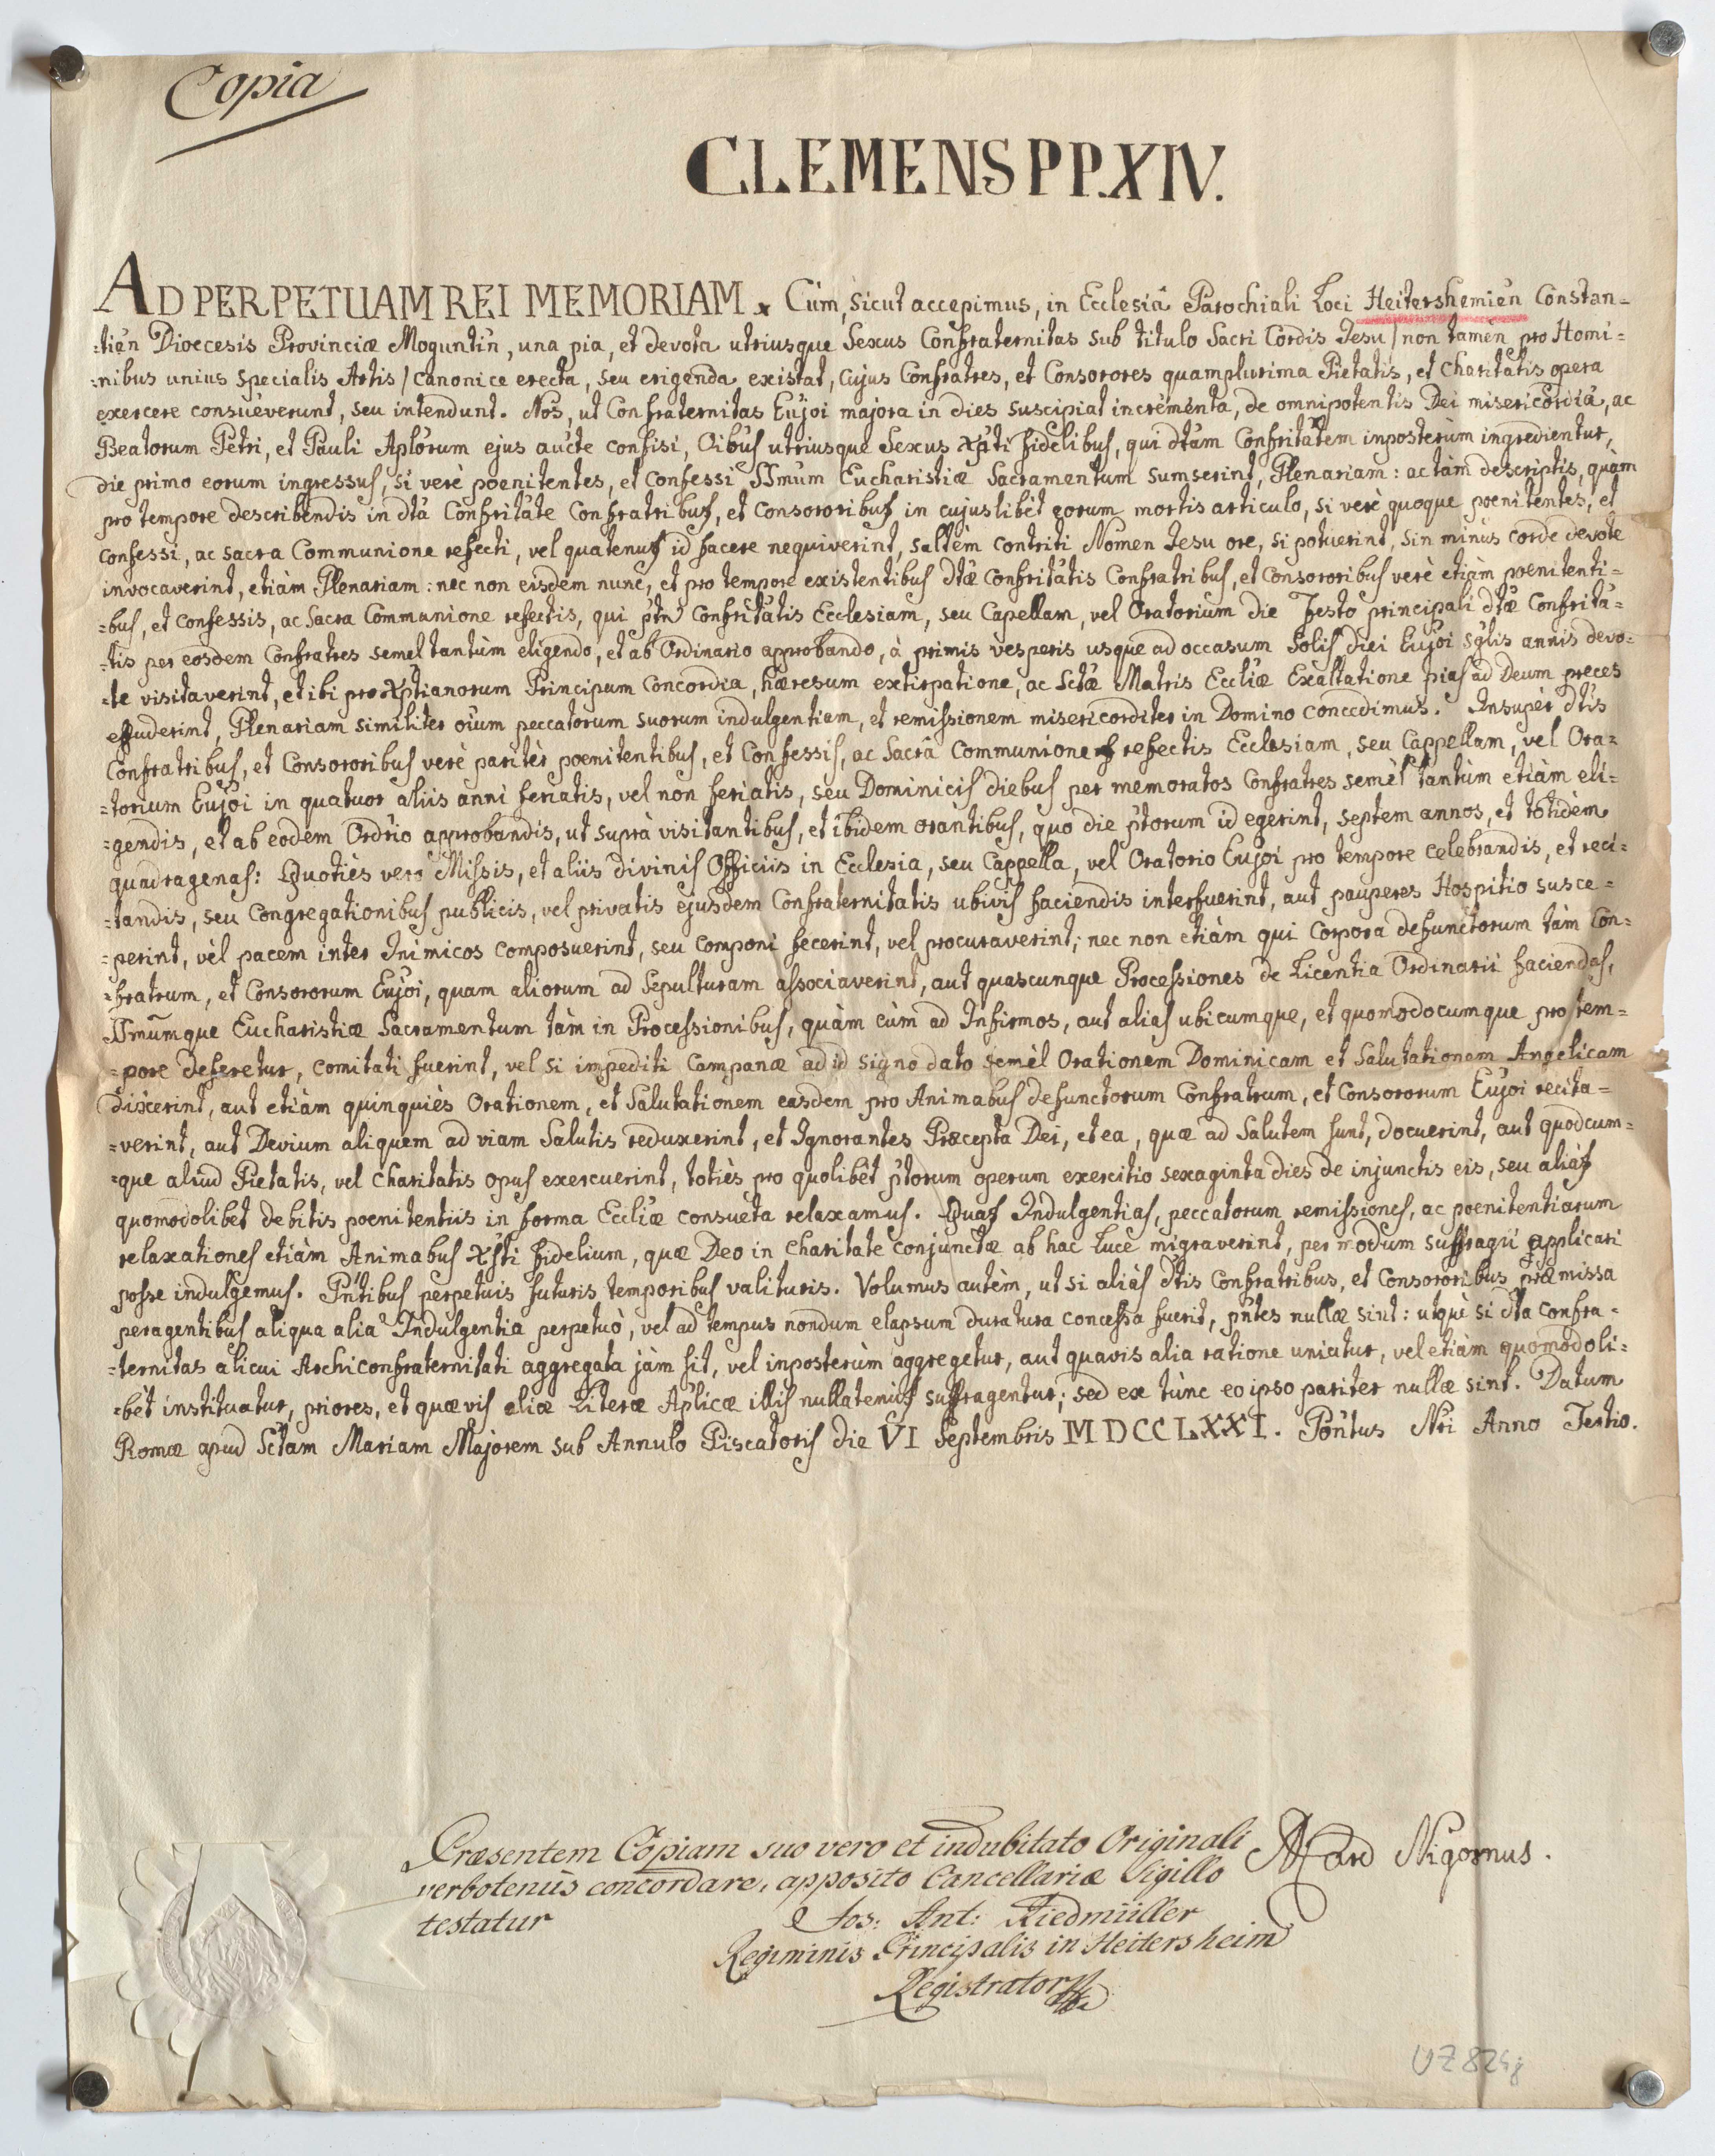 Copia
CLEMENS PP. XIV.
AD PERPETUAM REI MEMORIAM. Cùm, sicut accepimus, in Ecclesiâ Parochiali Loci Heitershemień Constan=
=tień Dioecesis Provinciæ Moguntiń, una pia, et devota utriusque Sexus Confraternitas sub titulo Sacri Cordis Jesu / non tamen pro Homi=
=nibus unius specialis Artis / canonice erecta, seu erigenda existat, cujus Confratres, et Consorores quamplurima Pietatis, et Charitatis opera
exercere consueverunt, seu intendunt. Nos, ut Confraternitas Eujoi majora in dies suscipiat incrementa, de omnipotentis Dei misericordiâ, ac
Beatorum Petri, et Pauli Aplorum ejus aucte confisi, Oibus utriusque Sexus Xpti fidelibus, qui dtam Confritatem inposterùm ingredientur,
die primo eorum ingressus, si verè poenitentes, et confessi SSmum Eucharistiæ Sacramentum sumserint, Plenariam: ac tàm descriptis, quàm
pro tempore describendis in dtâ Confritate Confratribus, et Consororibus in cujuslibet eorum mortis articulo, si verè quoque poenitentes, et
confessi, ac sacra Communione refecti, vel quatenus id facere nequiverint, saltèm contriti Nomen Jesu ore, si potuerint, sin minus corde devote
invocaverint, etiàm Plenariam: nec non eisdem nunc, et pro tempore existentibus dtæ Confritatis Confratribus, et Consororibus verè etiàm poenitenti=
=bus, et confessis, ac Sacra Communione refectis, qui ptæ Confritatis Ecclesiam, seu Capellam, vel Oratorium die Festo principali dtæ Confrita=
=tis per eosdem Confratres semel tantùm eligendo, et ab Ordinario approbando, à primis vesperis usque ad occasum Solis diei Eujoi sglis annis devo=
=te visitaverint, et ibi pro Xptianorum Principum Concordia, hæresum extirpatione, ac Sctæ Matris Eccliæ Exaltatione pias ad Deum preces
effuderint, Plenariam similiter oium peccatorum suorum indulgentiam, et remissionem misericorditer in Domino concedimus. Insupèr dtis
Confratribus, et Consororibus verè paritèr poenitentibus, et Confessis, ac Sacrâ Communione refectis Ecclesiam, seu Cappellam, vel Ora=
=torium Eujoi in quatuor aliis anni feriatis, vel non feriatis, seu Dominicis diebus per memoratos Confratres semèl tantùm etiàm eli=
=gendis, et ab eodem Ordrio approbandis, ut suprà visitantibus, et ibidem orantibus, quo die ptorum id egerint, septem annos, et totidèm
quadragenas: Quotiès vero Missis, et aliis divinis Officiis in Ecclesia, seu Cappella, vel Oratorio Eujoi pro tempore celebrandis, et reci=
=tandis, seu Congregationibus publicis, vel privatis ejusdem Confraternitatis ubivis faciendis interfuerint, aut pauperes Hospitio susce=
=perint, vèl pacem inter Inimicos composuerint, seu componi fecerint, vel procuraverint; nec non etiàm qui Corpora defunctorum tàm Con=
=fratrum, et Consororum Eujoi, quam aliorum ad Sepulturam associaverint, aut quascunque Processiones de Licentia Ordinarii faciendas,
SSmumque Eucharistiæ Sacramentum tàm in Processionibus, quàm cùm ad Infirmos, aut alias ubicumque, et quomodocumque pro tem=
=pore deferetur, comitati fuerint, vel si impediti Campanæ ad id signo dato semèl Orationem Dominicam et Salutationem Angelicam
dixerint, aut etiàm quinquiès Orationem, et Salutationem easdem pro Animabus defunctorum Confratrum, et Consororum Eujoi recita=
=verint, aut Devium aliquem ad viam Salutis reduxerint, et Ignorantes Præcepta Dei, et ea, quæ ad Salutem sunt, docuerint, aut quodcum=
=que aliud Pietatis, vel Charitatis opus exercuerint, totiès pro quolibèt ptorum operum exercitio sexaginta dies de injunctis eis, seu alias
quomodolibet debitis poenitentiis in forma Eccliæ consueta relaxamus. Quas Indulgentias, peccatorum remissiones, ac poenitentiarum
relaxationes etiàm Animabus Xsti fidelium, quæ Deo in charitate conjunctæ ab hac luce migraverint, per modum suffragii applicari
posse indulgemus. Pntibus perpetuis futuris temporibus valituris. Volumus autèm, ut si aliàs dtis Confratribus, et Consororibus præmissa
peragentibus aliqua alia Indulgentia perpetuò, vel ad tempus nondum elapsum duratura concessa fuerit, pntes nullæ sint: utquè si dta Confra=
=ternitas alicui Archiconfraternitati aggregata jàm sit, vel inposterùm aggregetur, aut quavis alia ratione uniatur, vel etiàm quomodoli=
=bèt instituatur, priores, et quævis aliæ Literæ Aplicæ illis nullatenus suffragentur; sed ex tùnc eo ipso pariter nullæ sint. Datum
Romæ apud Sctam Mariam Majorem sub Annulo Piscatoris die VI Septembris MDCCLXXI. Pontus Nri Anno Tertio.
Præsentem Copiam suo vero et indubitato Originali
verbotenùs concordare, apposito Cancellariæ Sigillo
testatur
Jos: Ant: Riedmüller
Regiminis Principalis in Heitersheim
Registrator
Card Nigronus.
UZ 824